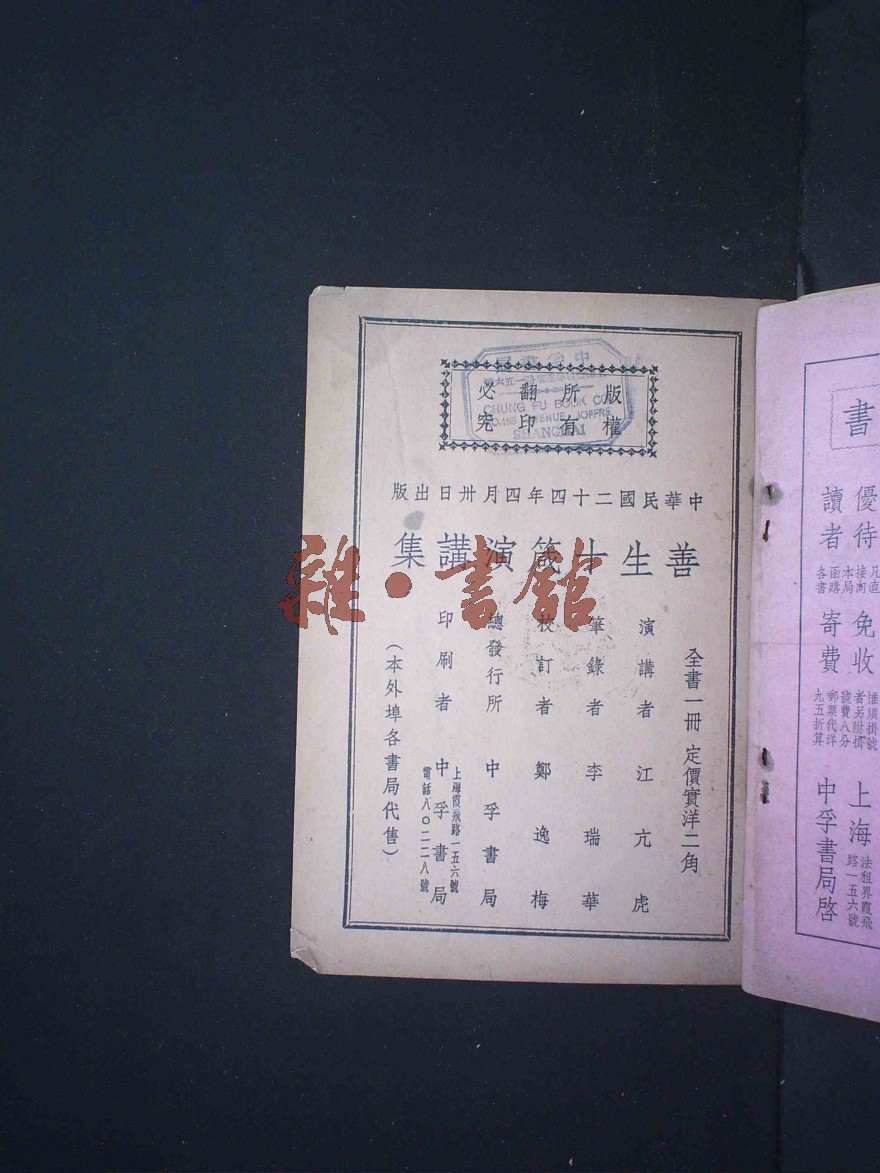 版權
所有
翻印
必究
CHUNG FU BOOK CO.
NO.156 AVENUE JOFFRE
SHANGHAI
中華民國二十四年四月卅日出版
善生十箴演講集
全書一冊 定價實洋二角
演講者 江亢虎
筆錄者 李瑞華
校訂者 鄭逸梅
總發行所 中孚書局
印刷者 中孚書局
上海霞飛路一五六號
電話八〇二二八號
(本外埠各書局代售)
雜·書館
書
優待
讀者
凡直
接向
本局
函購
各書
免收
寄費
惟須掛號
者另附掛
號費八分
郵票代洋
九五折算
上海
法租界霞飛
路一五六號
中孚書局啓